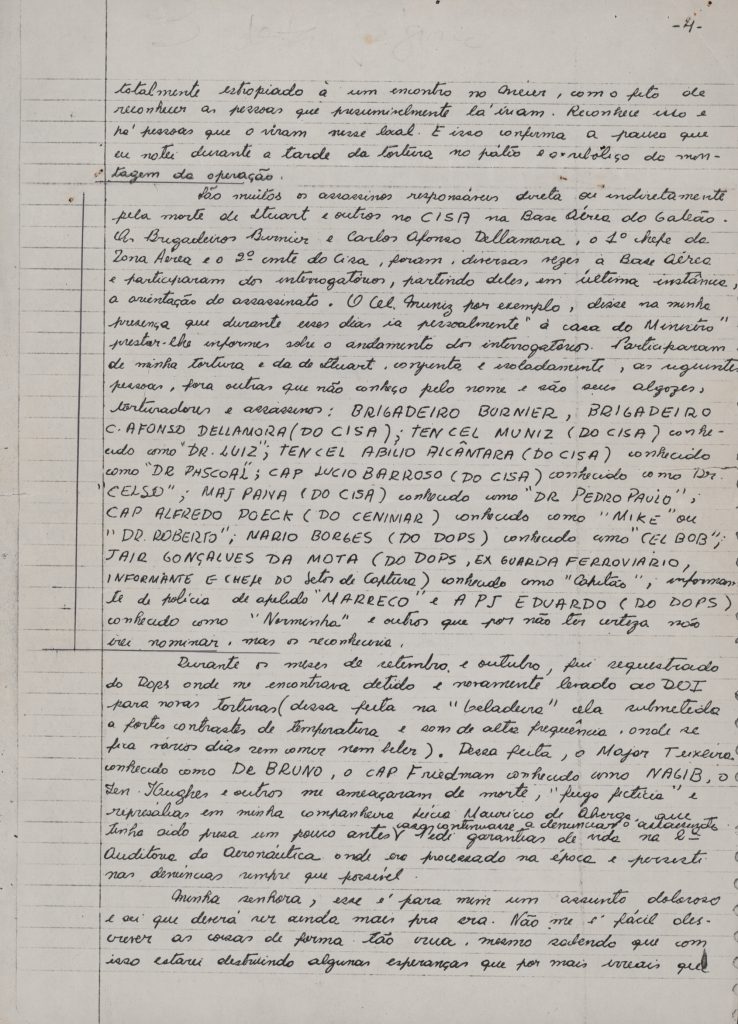 -4-
totalmente estropiado à um encontro no Meier, com o fito de
reconhecer as pessoas que presumivelmente lá iriam. Reconhece isso e
há pessoas que o viram nesse local. E isso confirma a pausa que
eu notei durante a tarde da tortura no pátio e o rebóliço da mon-
tagem da operação.
São muitos os assassinos responsáveis direta ou indiretamente
pela morte de Stuart e outros no CISA na Base Aérea do Galeão.
Os Brigadeiros Burnier e Carlos Afonso Dellamora, o 1º chefe da
Zona Aérea e o 2º cmte do Cisa, foram, diversas vezes à Base Aérea
e participaram dos interrogatórios, partindo deles, em última instância,
a orientação do assassinato. O Cel. Muniz por exemplo, disse na minha
presença que durante esses dias ia pessoalmente "à casa do Ministro"
prestar-lhe informes sobre o andamento dos interrogatórios. Participaram
de minha tortura e da de Stuart, conjunta e isoladamente, as seguintes
pessoas, fora outras que não conheço pelo nome e são seus algozes,
torturadores e assassinos: BRIGADEIRO BURNIER, BRIGADEIRO
C. AFONSO DELLAMORA (DO CISA); TEN CEL MUNIZ (DO CISA) conhe-
cido como "DR. LUIZ"; TEN CEL ABILIO ALCÂNTARA (DO CISA) conhecido
como "DR PASCOAL"; CAP LUCIO BARROSO (DO CISA) conhecido como DR.
"CELSO"; MAJ PAIVA (DO CISA) conhecido como "DR PEDRO PAULO";
CAP ALFREDO POECK (DO CENIMAR) conhecido como "MIKE" ou
"DR. ROBERTO"; MARIO BORGES (DO DOPS) conhecido como "CEL BOB";
JAIR GONÇALVES DA MOTA (DO DOPS, EX GUARDA FERROVIÁRIO,
INFORMANTE E CHEFE DO Setor de Captura) conhecido como "Capitão"; informan-
te de polícia de apelido "MARRECO" e APJ EDUARDO (DO DOPS)
conhecido como "Norminha" e outros que por não ter certeza não
irei nominar, mas os reconheceria.
Durante os meses de setembro e outubro, fui sequestrado
do Dops onde me encontrava detido e novamente levado ao DOI
para novas torturas (dessa feita na "Geladeira" cela submetida
a fortes contrastes de temperatura e som de alta frequência, onde se
fica vários dias sem comer nem beber). Dessa feita, o Major Teixeira
conhecido como DR BRUNO, o CAP Friedman conhecido como NAGIB, o
Ten. Hughes e outros me ameaçaram de morte, "fuga fictícia" e
represálias em minha companheira Lúcia Maurício de Alverga, que
tinha sido presa um pouco antes, caso continuasse a denunciar o assassinato
Pedi garantias de vida na 2ª
Auditoria da Aeronáutica onde era processado na época e persisti
nas denúncias sempre que possível.
Minha senhora, esse é para mim um assunto doloroso
e sei que deverá ser ainda mais pra sra. Não me é fácil des-
crever as coisas de forma tão crua, mesmo sabendo que com
isso estarei destruindo algumas esperanças que por mais irreais que